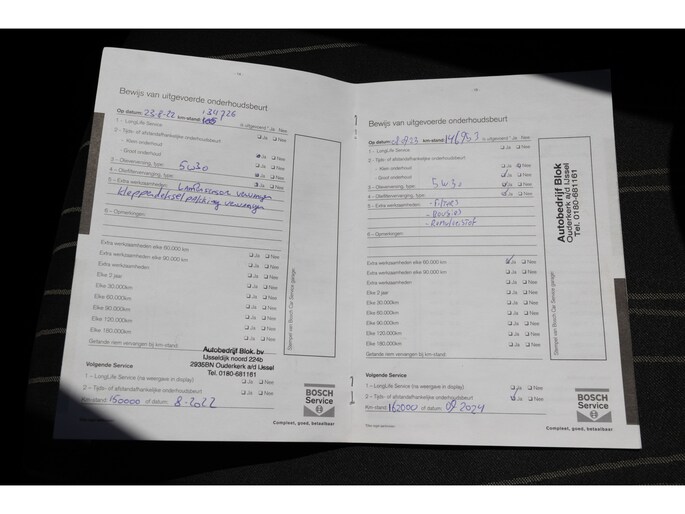 Bewijs van uitgevoerde onderhoudsbeurt
Op datum: 23-8-22 km-stand: 134726
1 - LongLife Service is uitgevoerd: * Ja Nee
2 - Tijds- of afstandafhankelijke onderhoudsbeurt Ja Nee
- Klein onderhoud
- Groot onderhoud Ja Nee
3 - Olieverversing, type: 5W30 Ja Nee
4 - Oliefilterverversing, type: Ja Nee
5 - Extra werkzaamheden: vervangen
kleppendekselpakking vervangen
6 - Opmerkingen:
Extra werkzaamheden elke 60.000 km Ja Nee
Extra werkzaamheden elke 90.000 km Ja Nee
Extra werkzaamheden: Ja Nee
Elke 2 jaar Ja Nee
Elke 30.000km Ja Nee
Elke 60.000km Ja Nee
Elke 90.000km Ja Nee
Elke 120.000km Ja Nee
Elke 180.000km Ja Nee
Getande riem vervangen bij km-stand:
Stempel van Bosch Car Service garage:
Autobedrijf Blok bv
IJsseldijk noord 224b
2935BN Ouderkerk a/d IJssel
Tel. 0180-681161
Volgende Service
1 - LongLife Service (na weergave in display) Ja Nee
2 - Tijds- of afstandafhankelijke onderhoudsbeurt Ja Nee
Km-stand: 150000 of datum: 8-2022
BOSCH
Service
Compleet, goed, betaalbaar
Bewijs van uitgevoerde onderhoudsbeurt
Op datum: 08-09-23 km-stand: 146953
1 - LongLife Service is uitgevoerd: * Ja Nee
2 - Tijds- of afstandafhankelijke onderhoudsbeurt
- Klein onderhoud Ja Nee
- Groot onderhoud Ja Nee
3 - Olieverversing, type: 5W30 Ja Nee
4 - Oliefilterverversing, type: Ja Nee
5 - Extra werkzaamheden: - Filters
- Bougies
- Remvloeistof
6 - Opmerkingen:
Extra werkzaamheden elke 60.000 km Ja Nee
Extra werkzaamheden elke 90.000 km Ja Nee
Extra werkzaamheden: Ja Nee
Elke 2 jaar Ja Nee
Elke 30.000km Ja Nee
Elke 60.000km Ja Nee
Elke 90.000km Ja Nee
Elke 120.000km Ja Nee
Elke 180.000km Ja Nee
Getande riem vervangen bij km-stand:
Stempel van Bosch Car Service garage:
Autobedrijf Blok
Ouderkerk a/d IJssel
Tel. 0180-681161
Volgende Service
1 - LongLife Service (na weergave in display) Ja Nee
2 - Tijds- of afstandafhankelijke onderhoudsbeurt Ja Nee
Km-stand: 162000 of datum: 09-2024
BOSCH
Service
Compleet, goed, betaalbaar